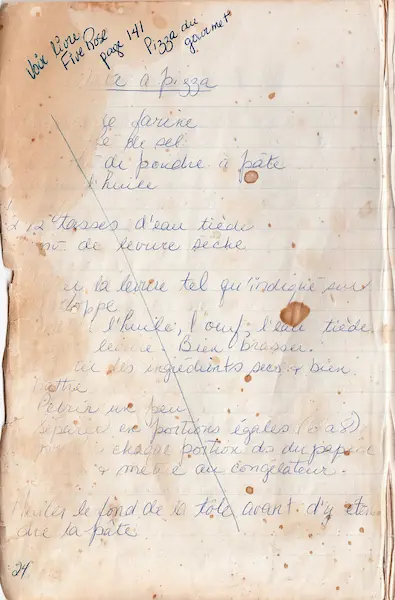 Voir Livre
Five Rose
page 141
Pizza du
gourmet
à pizza
de farine
de sel
de poudre à pâte
d'huile
2 1/2 tasses d'eau tiède
de levure sèche
la levure tel qu'indiqué sur
l'huile, l'oeuf, l'eau tiède
levure. Bien brasser.
des ingrédients secs & bien
Pétrir un peu
séparer en portions égales
chaque portion ds du papier
& mettre au congélateur.
Huiler le fond de la tôle avant d'y éten
dre la pâte
24